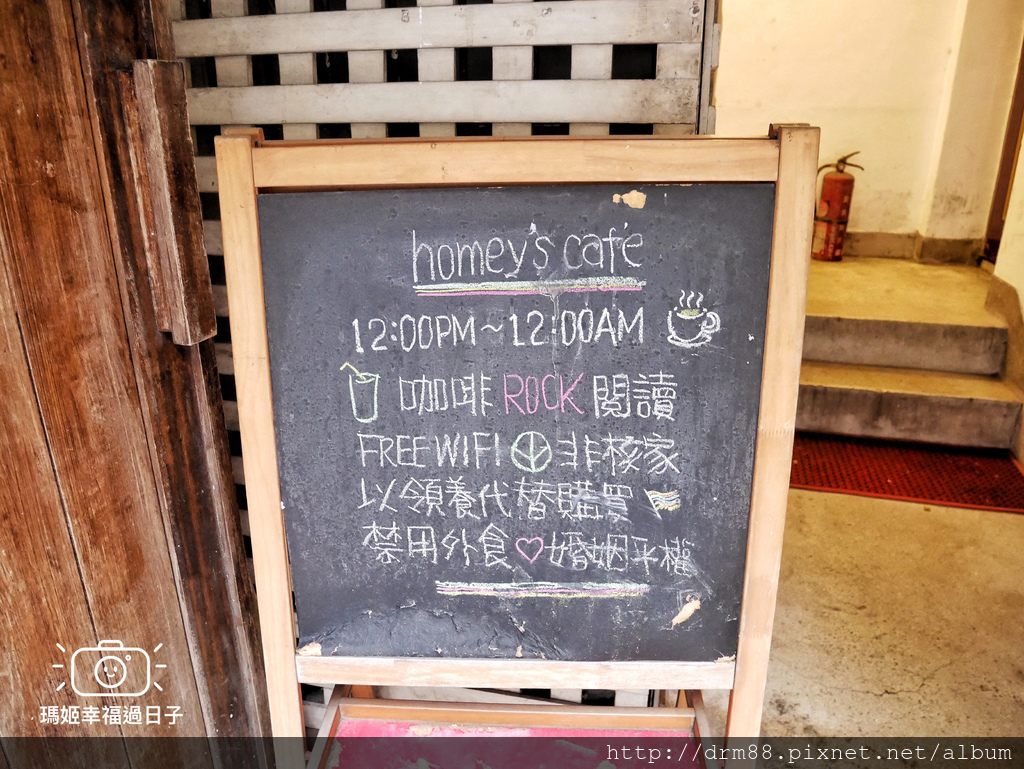 homey's café
12:00PM~12:00AM
咖啡 ROCK 閱讀
FREE WIFI 非核家
以領養代替購買
禁用外食 婚姻平權
瑪姬幸福過日子
http://drm88.pixnet.net/album